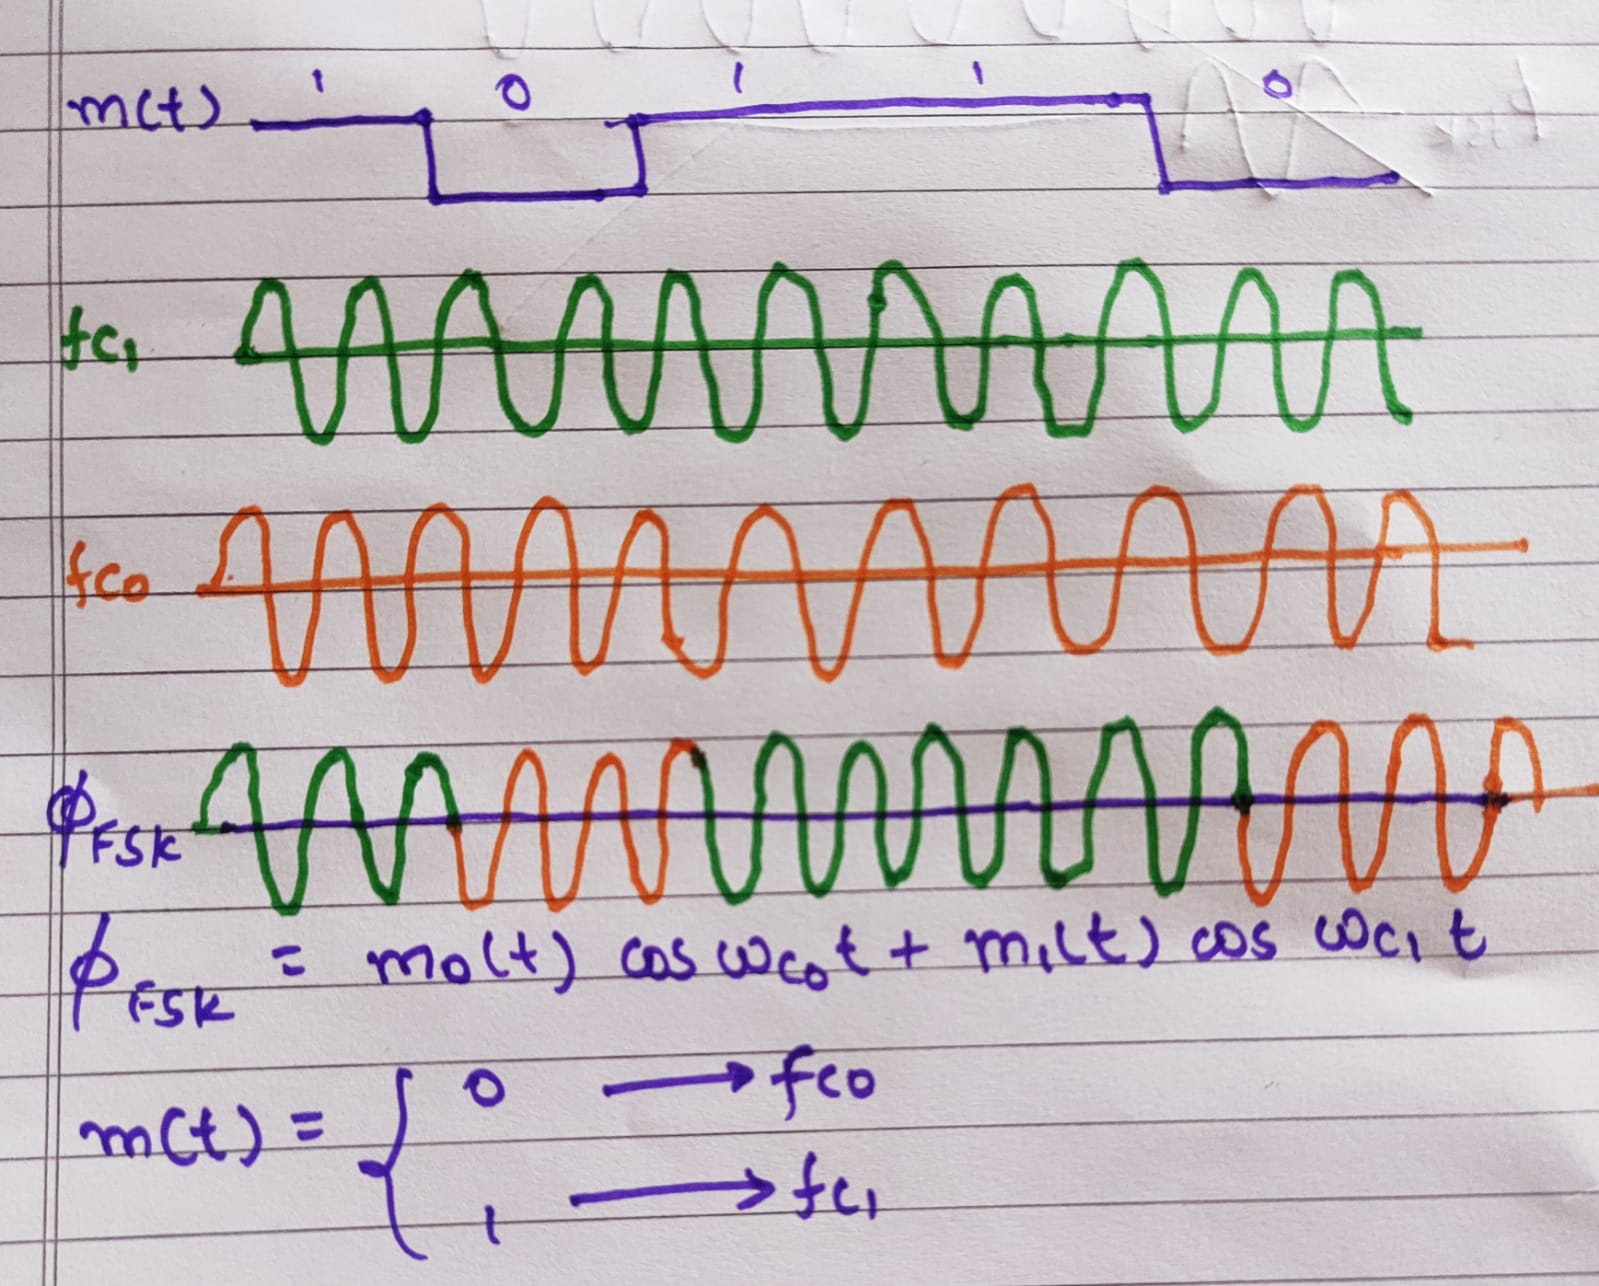 1 0 1 1 0
m(t)
fc₁
fc₀
ϕFSK
ϕFSK = m₀(t) cos ωc₀t + m₁(t) cos ωc₁ t
m(t) = { 0 → fc₀
1 → fc₁